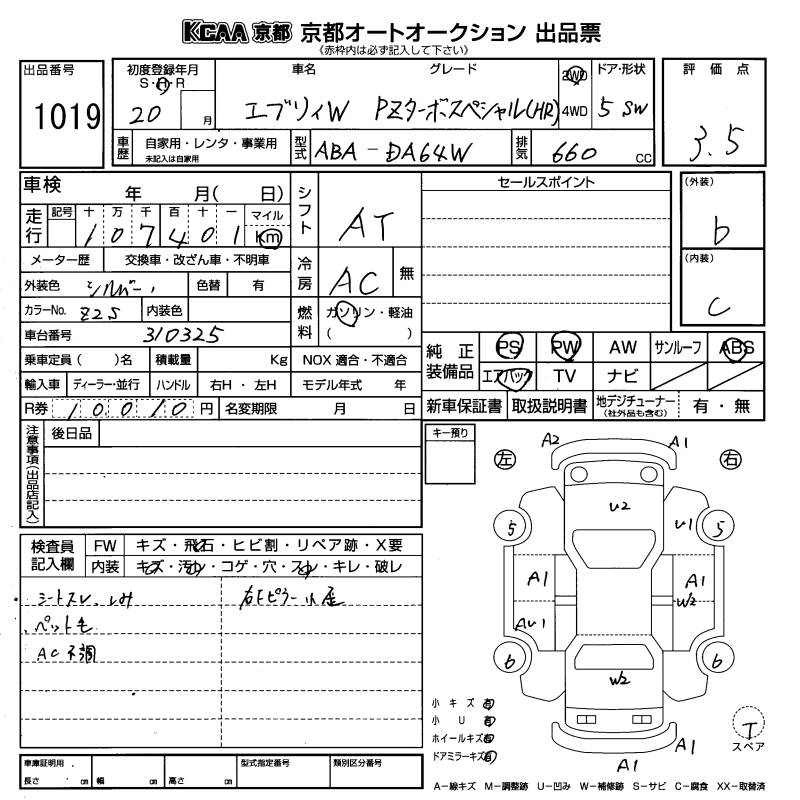 KCAA 京都 京都オートオークション 出品票
《赤枠内は必ず記入して下さい》
出品番号 1019
初度登録年月 S・H・R 20 月
車名 グレード エブリィW PZターボスペシャル(HR)
2WD 4WD
ドア・形状 5 SW
評価点 3.5
車歴 自家用・レンタ・事業用 未記入は自家用
型式 ABA-DA64W
排気 660 CC
車検 年 月( 日)
シフト AT
セールスポイント
(外装) b
走行 記号 十 万 千 百 十 一 マイル Km
1 0 7 4 0 1
メーター歴 交換車・改ざん車・不明車
冷房 AC 無
(内装) C
外装色 シルバー 色替 有
カラーNo. Z2S 内装色
燃料 ガソリン・軽油 ( )
車台番号 310325
純正装備品 PS PW AW サンルーフ ABS
エアバック TV ナビ
乗車定員( )名 積載量 Kg NOX 適合・不適合
輸入車 ディーラー・並行 ハンドル 右H・左H モデル年式 年
R券 10010 円 名変期限 月 日
新車保証書 取扱説明書 地デジチューナー (社外品も含む) 有・無
注意事項(出品店記入) 後日品
キー預り
A2 A1
左 右
U2
5 U1 5
A1 A1
W2
AU1
6 6
W2
A1
A1
検査員記入欄 FW キズ・飛石・ヒビ割・リペア跡・X要
内装 キズ・汚れ・コゲ・穴・スレ・キレ・破レ
・シートスレ、しみ
・ペット毛
AC不調
小キズ 有
小U 有
ホイールキズ 有
ドアミラーキズ 有
T
スペア
車庫証明用 長さ cm 幅 cm 高さ cm
型式指定番号 類別区分番号
A-線キズ M-調整跡 U-凹み W-補修跡 S-サビ C-腐食 XX-取替済